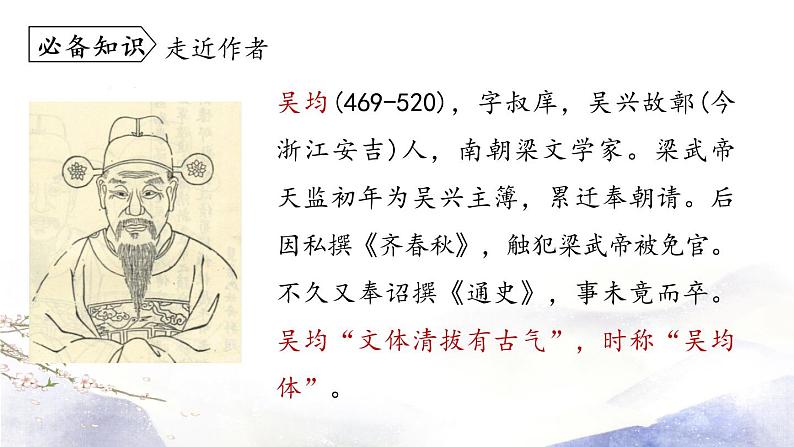 必备知识 走近作者
吴均(469-520)，字叔庠，吴兴故鄣(今
浙江安吉)人，南朝梁文学家。梁武帝
天监初年为吴兴主簿，累迁奉朝请。后
因私撰《齐春秋》，触犯梁武帝被免官。
不久又奉诏撰《通史》，事未竟而卒。
吴均“文体清拔有古气”，时称“吴均
体”。